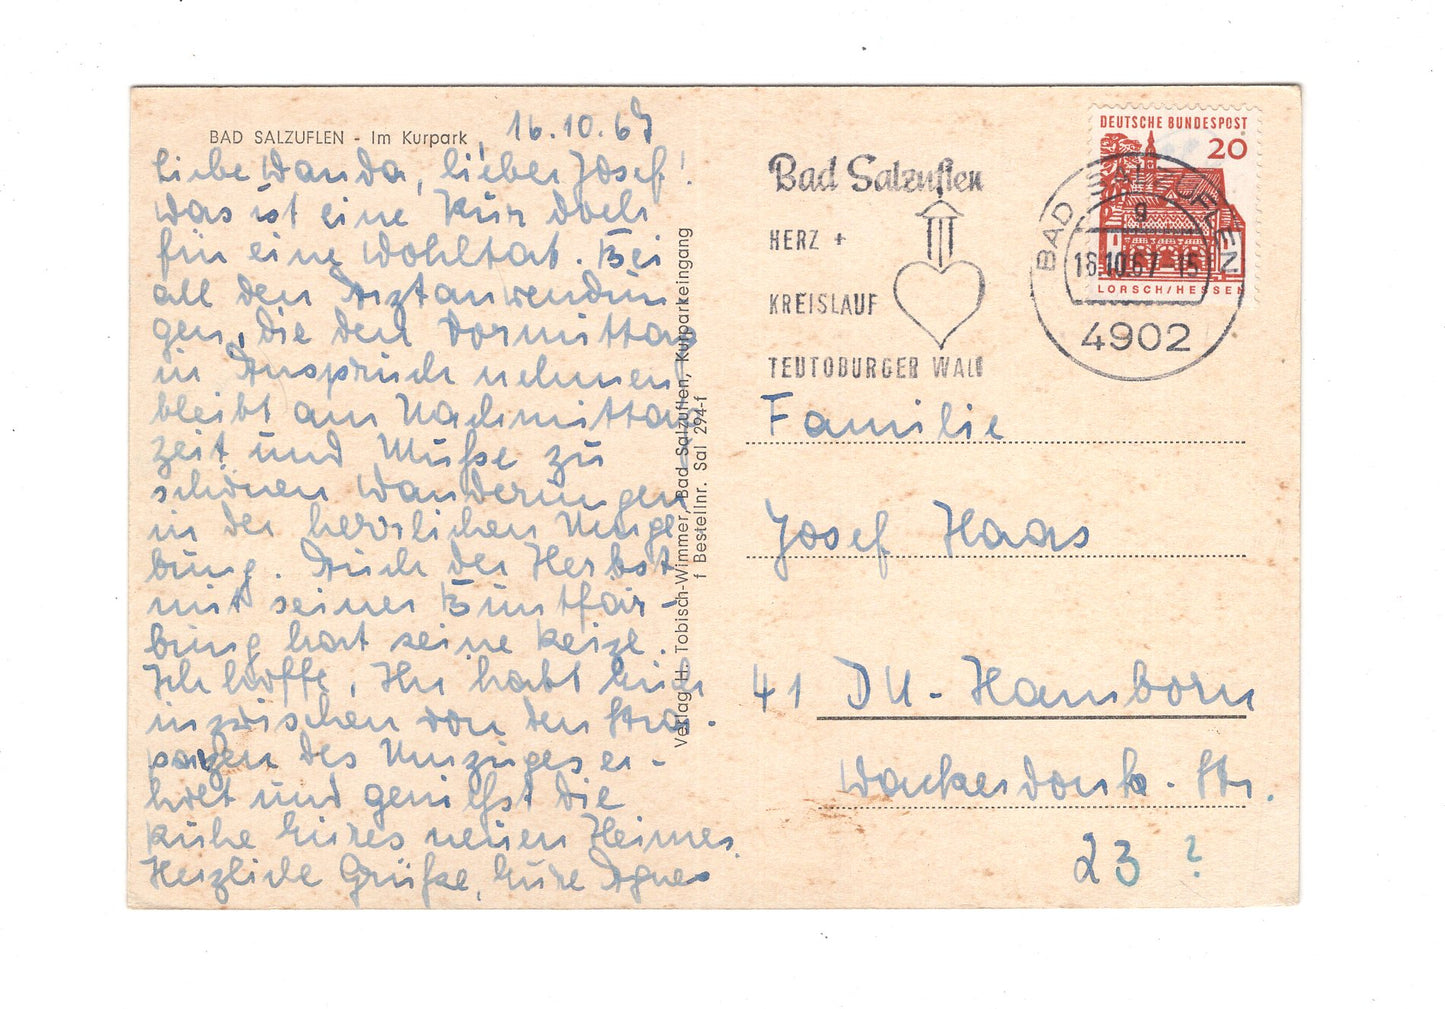 BAD SALZUFLEN - Im Kurpark
16.10.67
Liebe Wanda, lieber Josef!
Was ist eine Kur doch
für eine Wohltat. Bei
all den Arztanwendun
gen, die den Vormittag
in Anspruch nehmen
bleibt am Nachmittag
Zeit und Muße zu
schönen Wanderungen
in der herrlichen Umge
bung. Auch der Herbst
mit seiner Buntfär-
bung hat seine Reize.
Ich hoffe, Ihr habt Euch
inzwischen von den Stra-
pazen des Umzuges er-
holt und genießt die
Ruhe Eures neuen Heimes.
Herzliche Grüße, Eure Agnes
Verlag H. Tobisch-Wimmer, Bad Salzuflen, Kurparkeingang
f Bestellnr. Sal 294-f
Bad Salzuflen
HERZ +
KREISLAUF
TEUTOBURGER WALD
DEUTSCHE BUNDESPOST
20
LORSCH/HESSEN
BAD SALZUFLEN
g
16.10.67-15
4902
Familie
Josef Haas
41 DU-Hamborn
Wackerdonk-Str.
23 ?